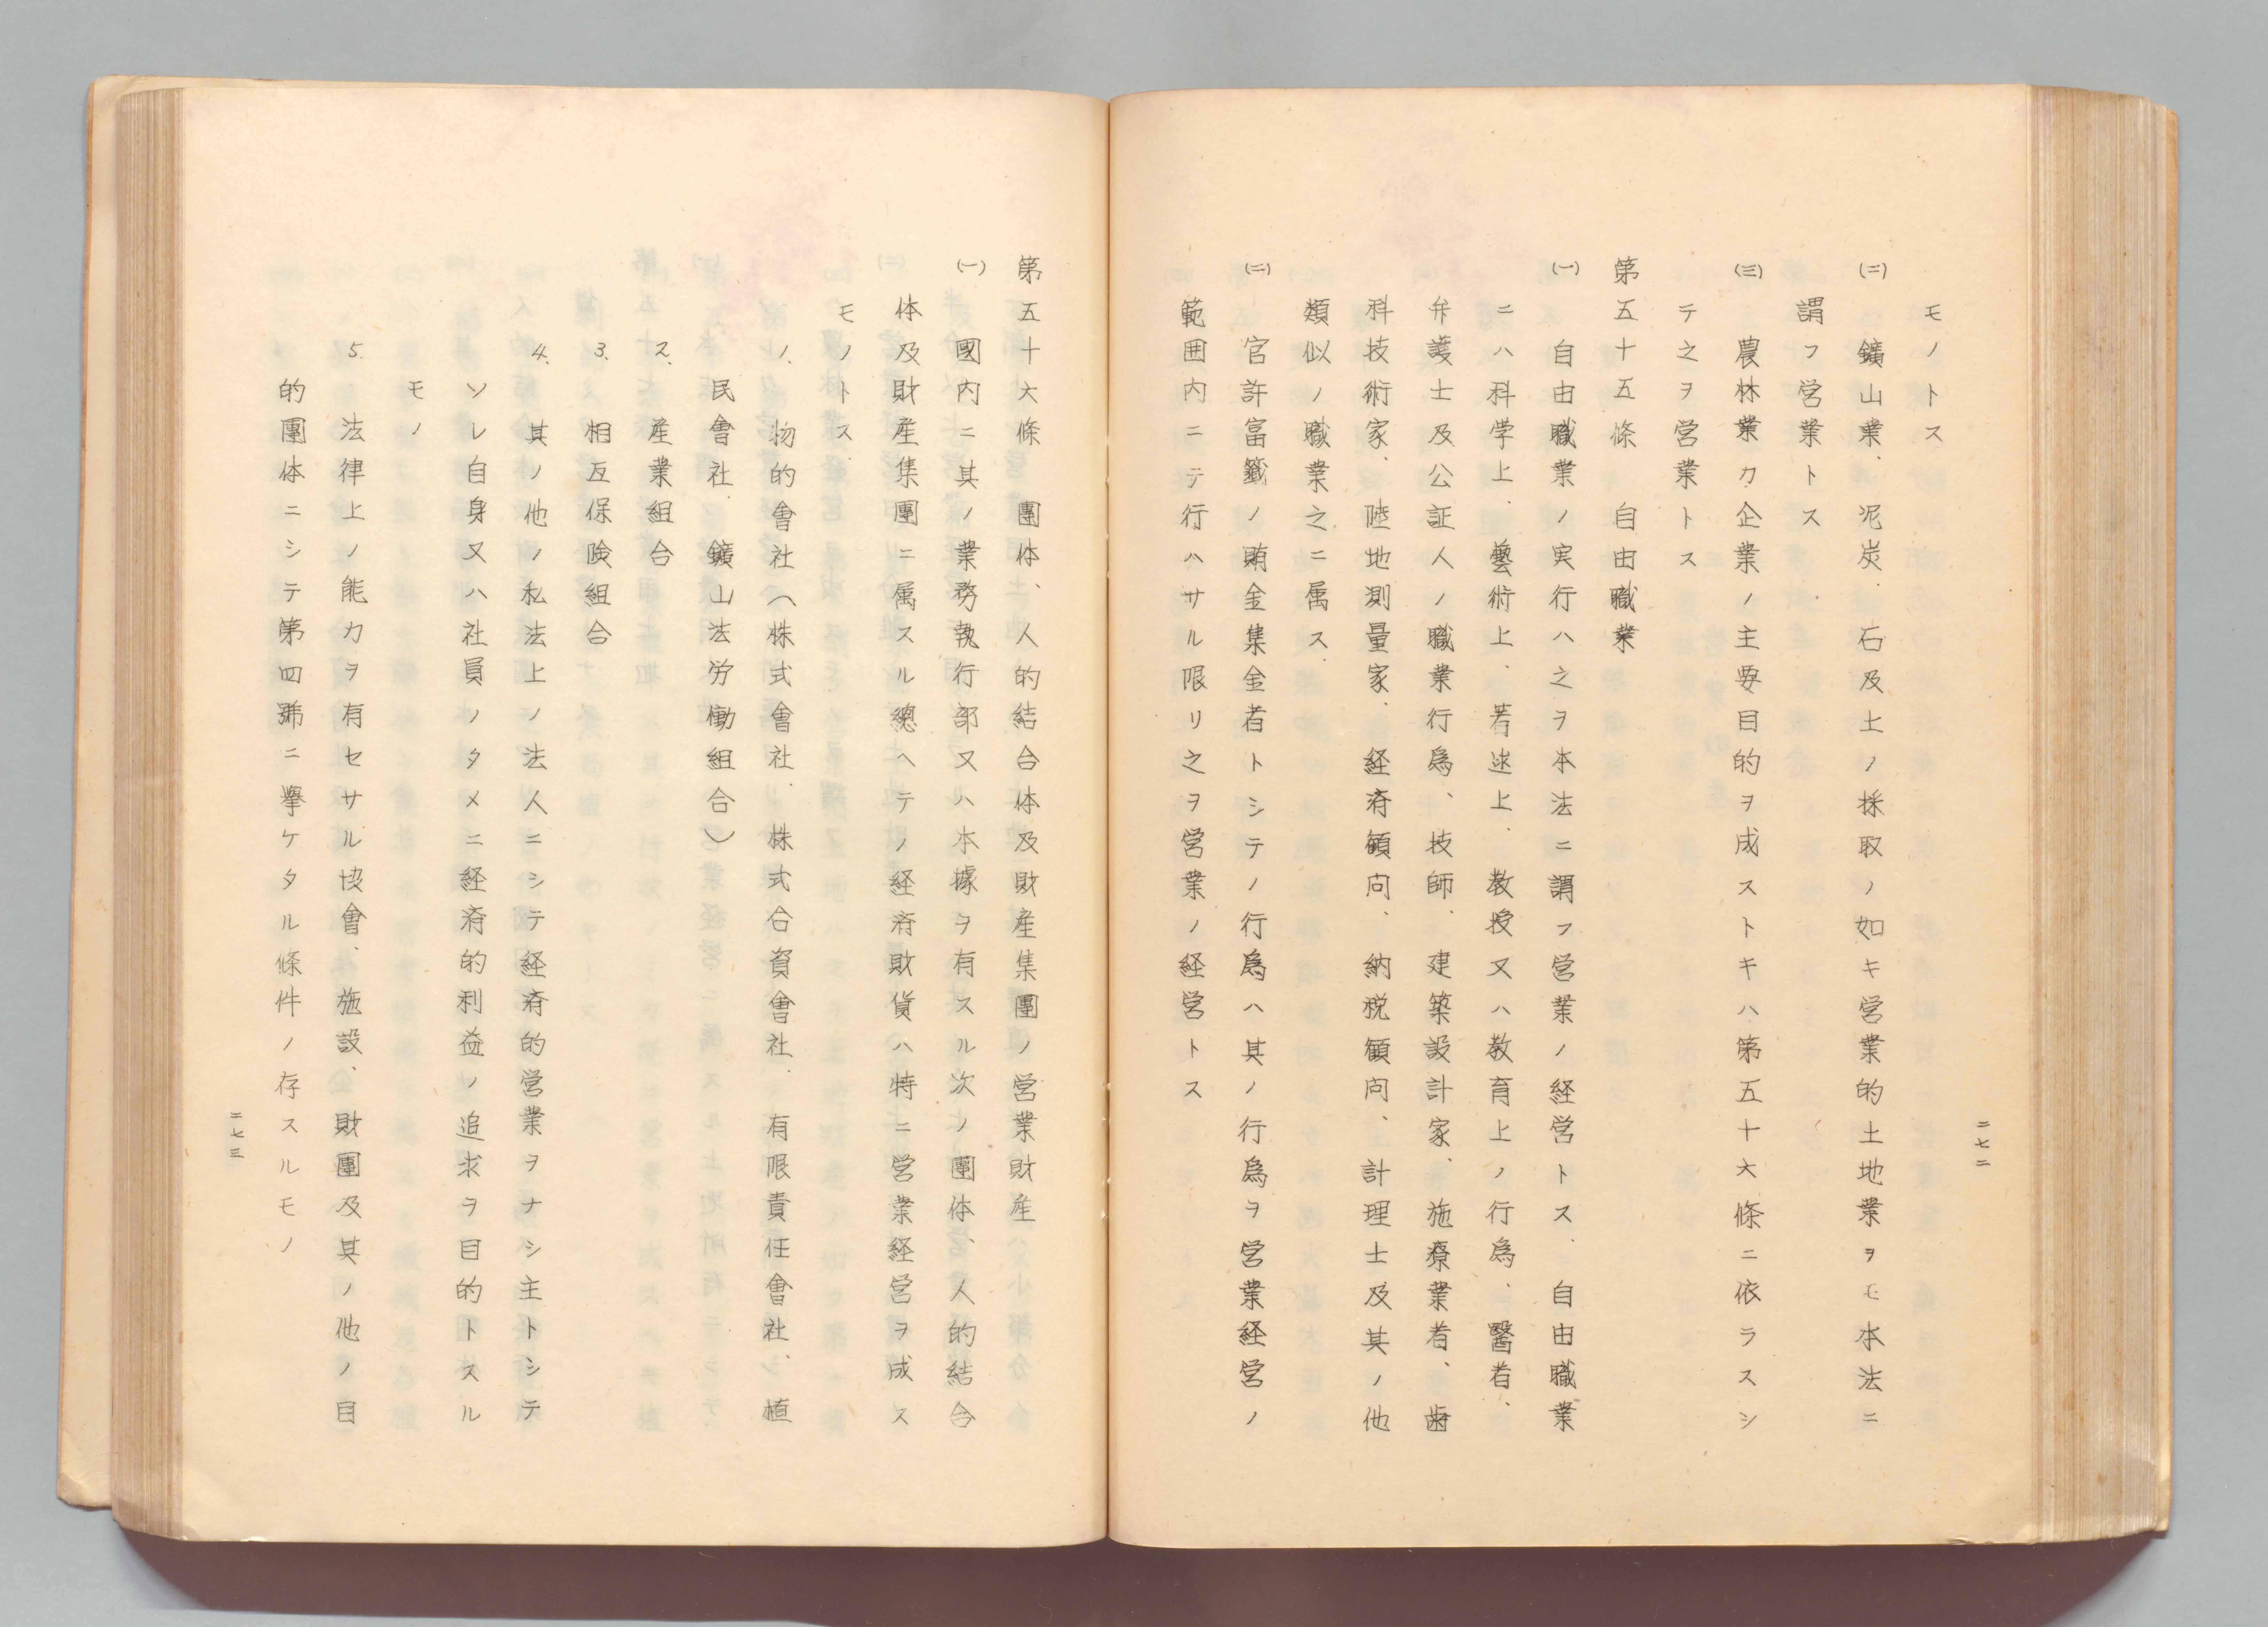 モノトス
(二) 鑛山業、泥炭、石及土ノ採取ノ如キ営業的土地業ヲモ本法ニ
謂フ営業トス
(三) 農林業カ企業ノ主要目的ヲ成ストキハ第五十六條ニ依ラスシ
テ之ヲ営業トス
第五十五條 自由職業
(一) 自由職業ノ実行ハ之ヲ本法ニ謂フ営業ノ経営トス、自由職業
ニハ科学上、藝術上、著述上、教授又ハ教育上ノ行為、醫者、
弁護士及公証人ノ職業行為、技師、建築設計家、施療業者、歯
科技術家、陸地測量家、経済顧問、納税顧問、計理士及其ノ他
類似ノ職業之ニ属ス、
(二) 官許富籤ノ賭金集金者トシテノ行為ハ其ノ行為ヲ営業経営ノ
範囲内ニテ行ハサル限リ之ヲ営業ノ経営トス
二七二
第五十六條 團体、人的結合体及財産集團ノ営業財産
(一) 國内ニ其ノ業務執行部又ハ本據ヲ有スル次ノ團体、人的結合
体及財産集團ニ属スル總ヘテノ経済財貨ハ特ニ営業経営ヲ成ス
モノトス、
1、物的會社(株式會社、株式合資會社、有限責任會社、植
民會社、鑛山法労働組合)
2、産業組合
3、相互保険組合
4、其ノ他ノ私法上ノ法人ニシテ経済的営業ヲナシ主トシテ
ソレ自身又ハ社員ノタメニ経済的利益ノ追求ヲ目的トスル
モノ
5、法律上ノ能力ヲ有セサル協會、施設、財團及其ノ他ノ目
的團体ニシテ第四號ニ擧ケタル條件ノ存スルモノ
二七三